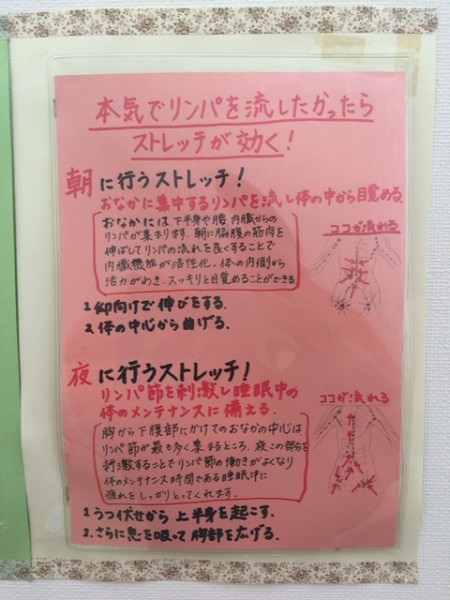 本気でリンパを流したかったら
ストレッチが効く!
朝に行うストレッチ!
おなかに集中するリンパを流し体の中から目覚める。
おなかには下半身や腸、内臓からの
リンパが集まります。朝に脇腹の筋肉を
伸ばしてリンパの流れを良くすることで
内臓機能が活性化。体の内側から
活力がわき、スッキリと目覚めることができる
ココが流れる
1.仰向けで伸びをする。
2.体の中心から曲げる。
夜に行うストレッチ!
リンパ節を刺激し睡眠中の
体のメンテナンスに備える。
ココが流れる
胸から下腹部にかけてのおなかの中心は
リンパ節が最も多く集まるところ。夜この部分を
刺激することでリンパ節の働きがよくなり
体のメンテナンス時間である睡眠中に
疲れをしっかりとってくれます。
1.うつ伏せから上半身を起こす。
2.さらに息を吸って胸部を広げる。